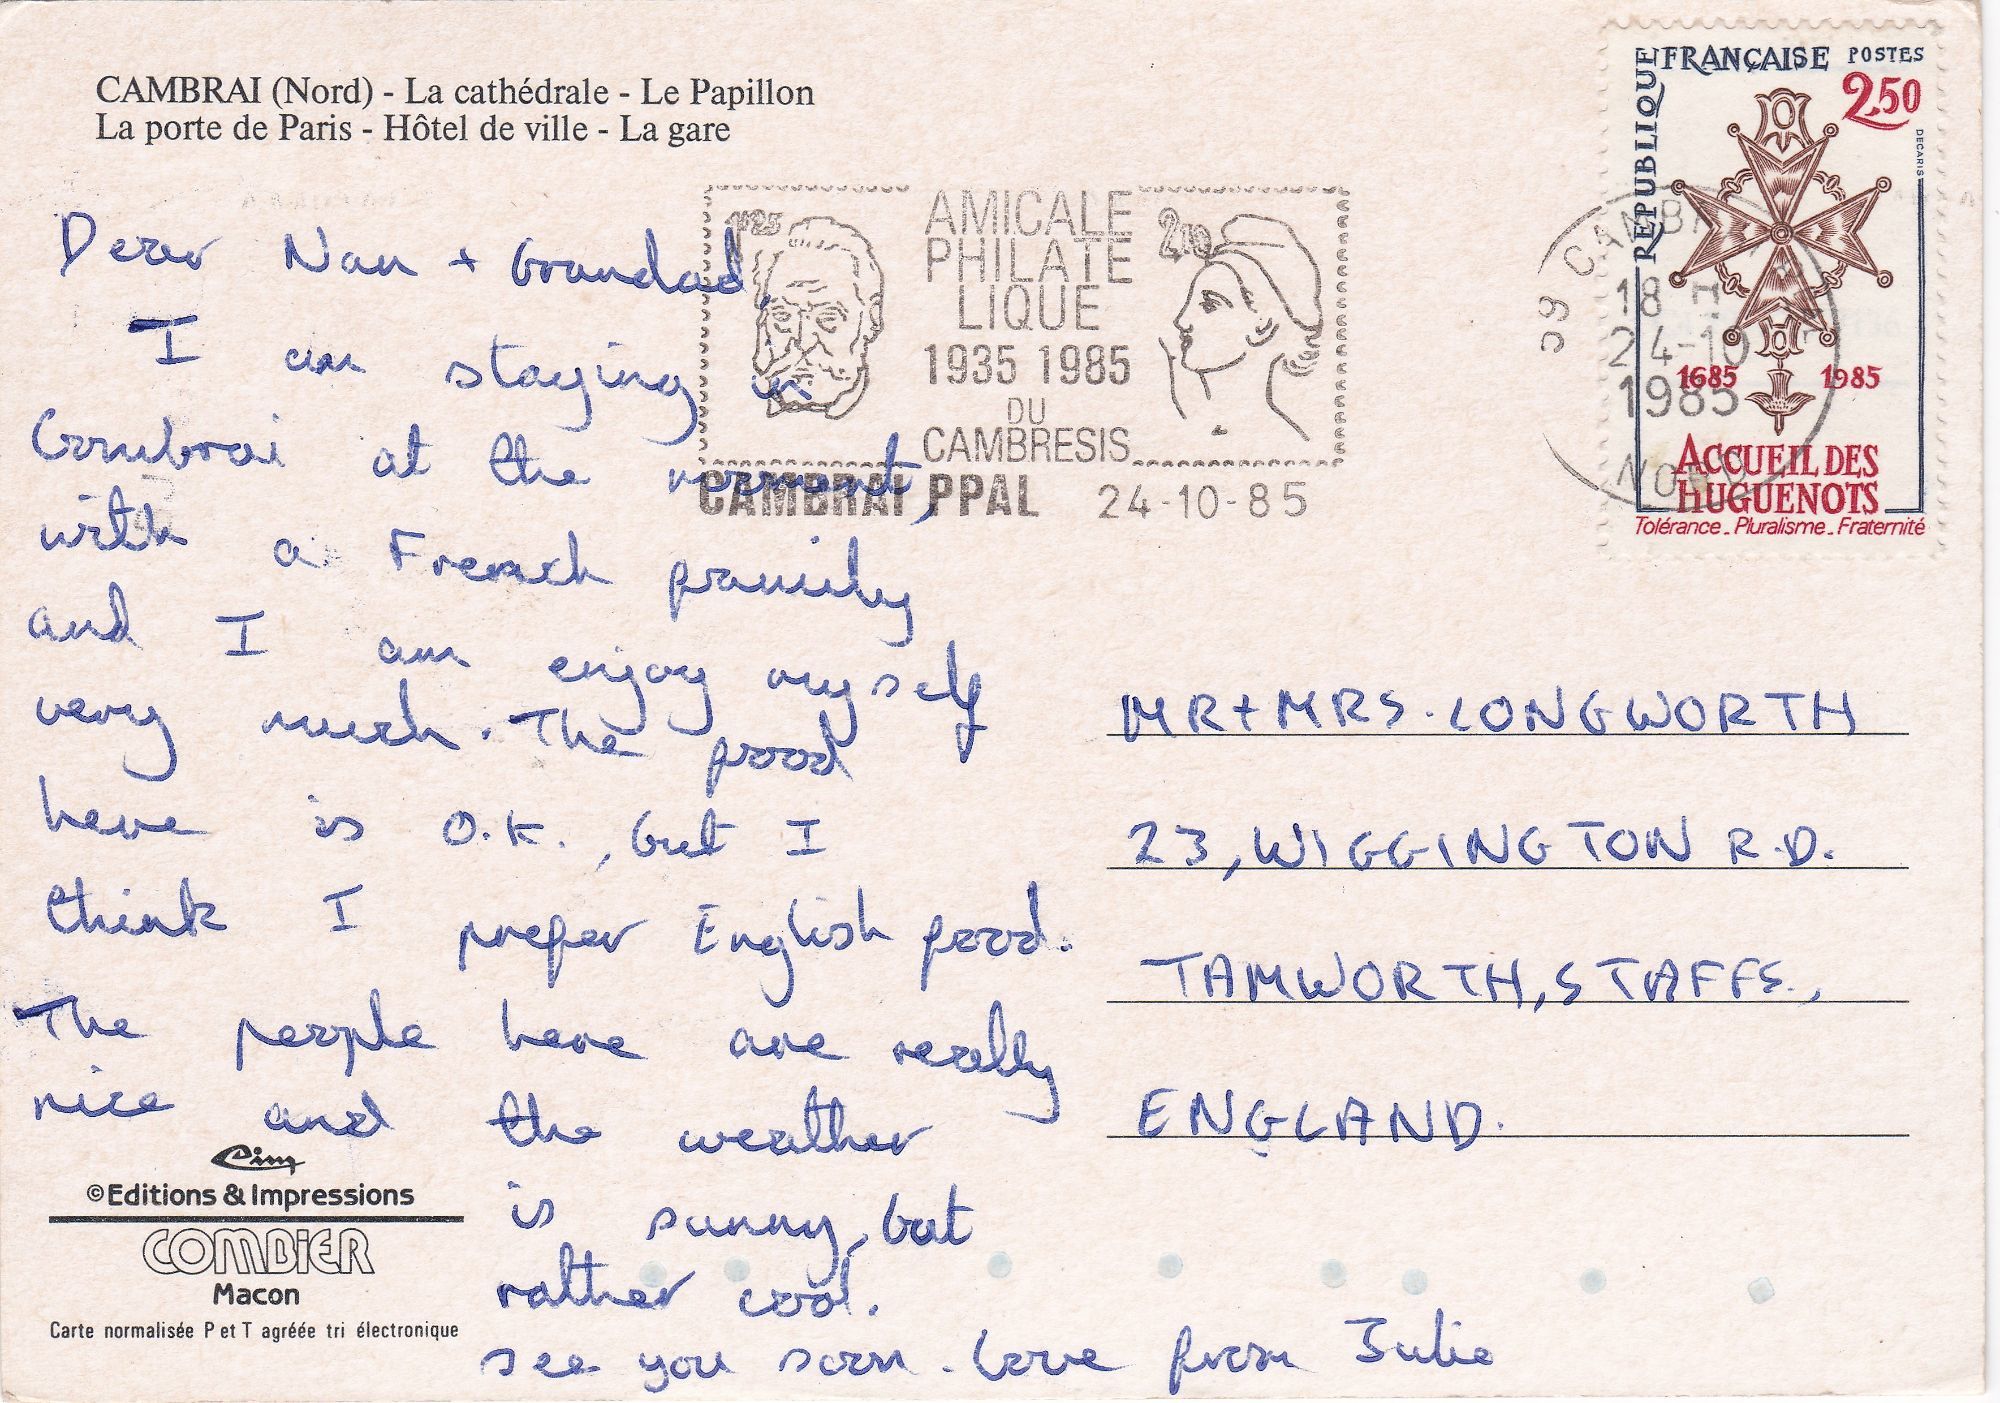 CAMBRAI (Nord) - La cathédrale - Le Papillon
La porte de Paris - Hôtel de ville - La gare
Dear Nan + Grandad,
I am staying in
Cambrai at the moment,
with a French family
and I am enjoy myself
very much. The food
here is O.K., but I
think I prefer English food.
The people here are really
nice and the weather
is sunny, but
rather cool.
see you soon. Love from Julie
Cim
© Editions & Impressions
COMBIER
Macon
Carte normalisée P et T agréée tri électronique
AMICALE
PHILATE
LIQUE
1935 1985
DU
CAMBRESIS
2,10
CAMBRAI PPAL 24-10-85
59 CAMBRAI
18 H
24-10
1985
NORD
REPUBLIQUE FRANÇAISE POSTES
2,50
DECARIS
1685 1985
ACCUEIL DES
HUGUENOTS
Tolérance _ Pluralisme _ Fraternité
MR + MRS. LONGWORTH
23, WIGGINGTON R.D.
TAMWORTH, STAFFS.,
ENGLAND.